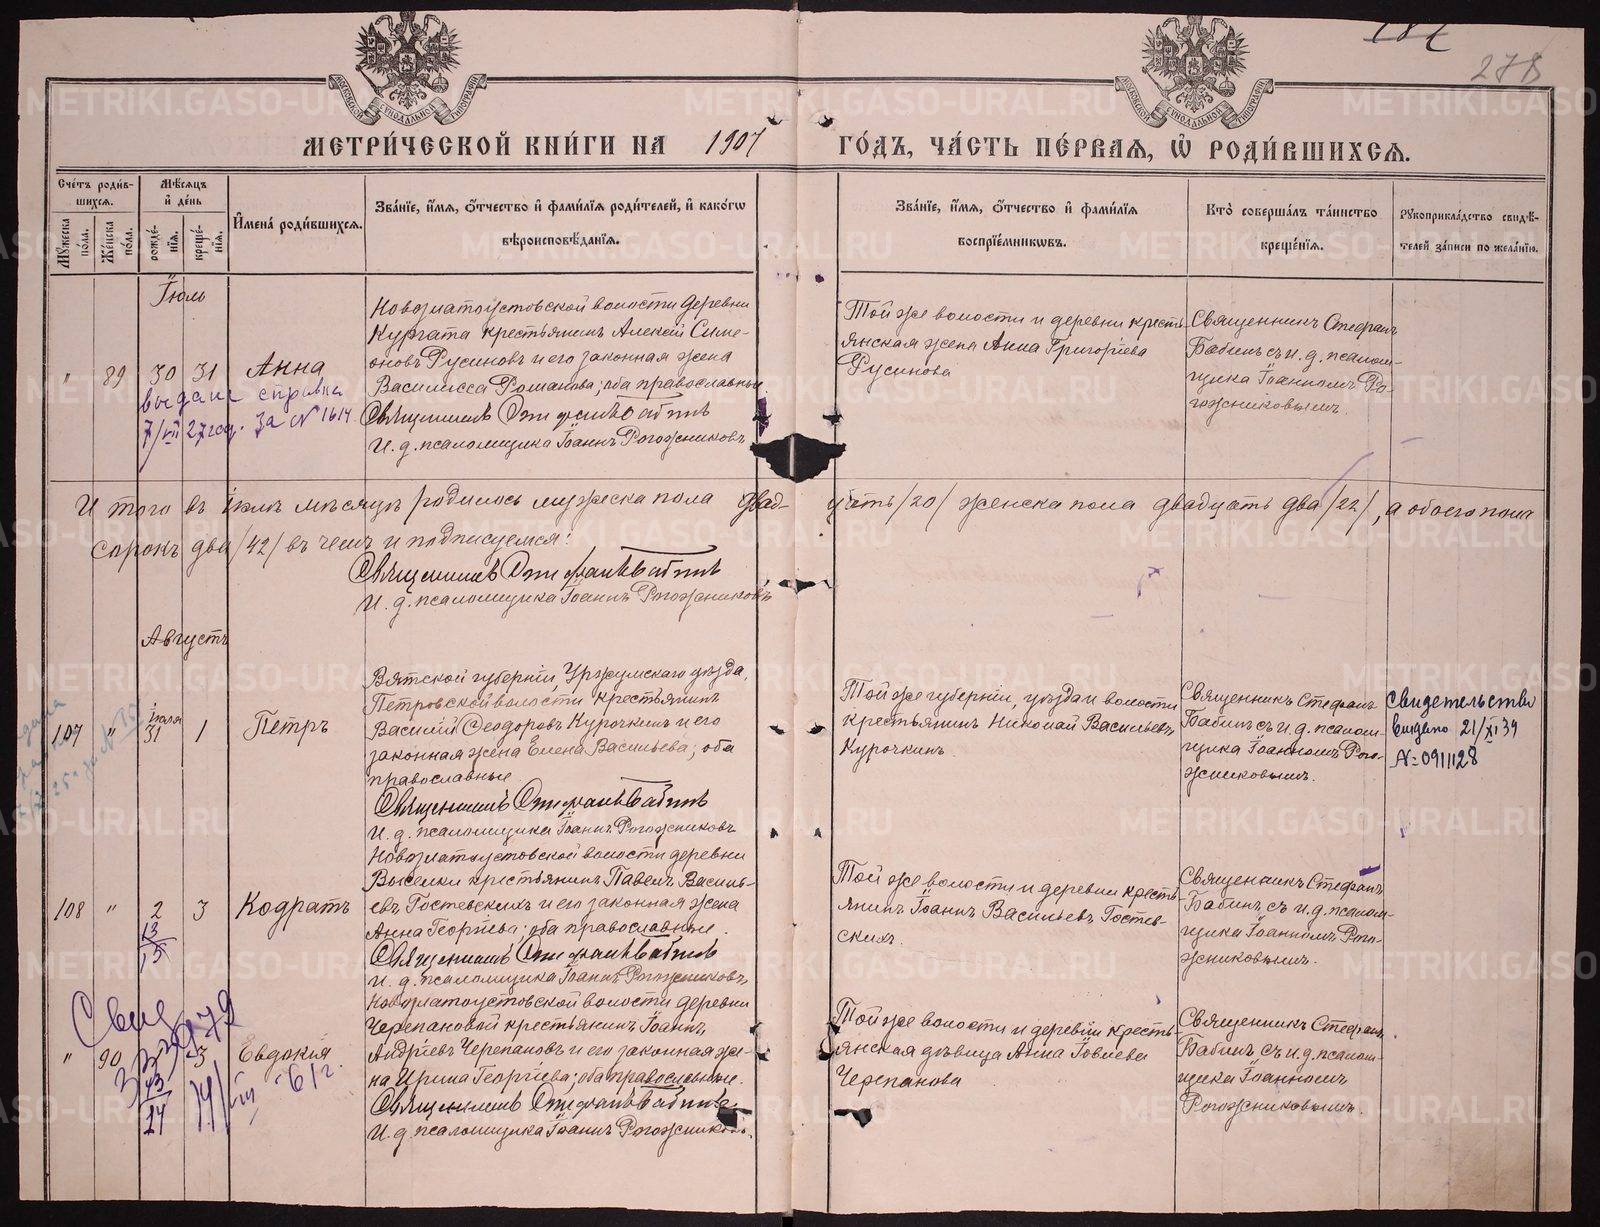 278
МЕТРИ́ЧЕСКОЙ КНИ́ГИ НА 1907 ГО́ДЪ, ЧА́СТЬ ПЕ́РВАЯ, Ѡ РОДИ́ВШИХСЯ.
Сче́тъ роди́вшихся.
Мꙋ́жеска по́ла.
Же́нска по́ла.
Мѣ́сяцъ и҆ де́нь
рожде́нїя.
креще́нїя.
И҆мена̀ роди́вшихся.
Зва́нїе, и҆́мя, ѻ҆́тчество и҆ фами́лїя роди́телей, и҆ како́гѡ
вѣроисповѣ́данїя.
Зва́нїе, и҆́мя, ѻ҆́тчество и҆ фами́лїя
воспрїе́мникѡвъ.
Кто̀ соверша́лъ та́инство
креще́нїя.
Рꙋкоприкла́дство свидѣ́-
телей за́писи по жела́нїю.
Іюль
" 89 30 31 Анна
выдана справка
7/VII 27 год. За № 1614
Новозлатоустовской волости деревни
Кургата крестьянинъ Алексій Симе-
оновъ Русиновъ и его законная жена
Василисса Романова; оба православные
Священникъ Стефанъ Бабинъ
И. д. псаломщика Іоаннъ Рогожниковъ
Той же волости и деревни кресть-
янская жена Анна Григоріева
Русинова
Священникъ Стефанъ
Бабинъ съ и. д. псалом-
щика Іоанномъ Ро-
гожниковымъ.
И того въ іюлѣ мѣсяцѣ родилось мужеска пола двад-
цать /20/ женска пола двадцать два /22/, а обоего пола
сорокъ два /42/ въ чемъ и подписуемся:
Священникъ Стефанъ Бабинъ
И. д. псаломщика Іоаннъ Рогожниковъ
Августъ
107 " іюля 31 1 Петръ
Вятской губерніи, Уржумскаго уѣзда,
Петровской волости крестьянинъ
Василій Ѳеодоровъ Курочкинъ и его
законная жена Елена Васильева; оба
православные
Священникъ Стефанъ Бабинъ
И. д. псаломщика Іоаннъ Рогожниковъ
Той же губерніи, уѣзда и волости
крестьянинъ Николай Васильевъ
Курочкинъ.
Священникъ Стефанъ
Бабинъ съ и. д. псалом-
щика Іоанномъ Рого-
жниковымъ.
Свидетельство
выдано 21/XI 34
№ 0911128
108 " 2 3 Кодратъ
13
15
Новозлатоустовской волости деревни
Выселки крестьянинъ Павелъ Василь-
евъ Гостевскихъ и его законная жена
Анна Георгіева; оба православные.
Священникъ Стефанъ Бабинъ
И. д. псаломщика Іоаннъ Рогожниковъ
Той же волости и деревни кресть-
янинъ Іоаннъ Васильевъ Гостев-
скихъ.
Священникъ Стефанъ
Бабинъ съ и. д. псалом-
щика Іоанномъ Рого-
жниковымъ.
" 90 3 Евдокія
61 г.
Новозлатоустовской волости деревни
Черепановой крестьянинъ Іоаннъ
Андріевъ Черепановъ и его законная же-
на Ирина Георгіева; оба православные.
Священникъ Стефанъ Бабинъ
И. д. псаломщика Іоаннъ Рогожниковъ.
Той же волости и деревни кресть-
янская дѣвица Анна Іовлева
Черепанова
Священникъ Стефанъ
Бабинъ съ и. д. псалом-
щика Іоанномъ
Рогожниковымъ.
METRIKI.GASO-URAL.RU